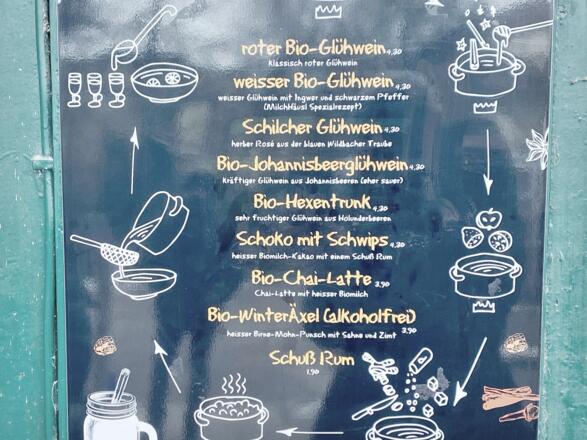 roter Bio-Glühwein 4,30
klassisch roter Glühwein
weisser Bio-Glühwein 4,30
weisser Glühwein mit Ingwer und schwarzem Pfeffer
(MilchHäusl Spezialrezept)
Schilcher Glühwein 4,30
herber Rosé aus der blauen Wildbacher Traube
Bio-Johannisbeerglühwein 4,30
kräftiger Glühwein aus Johannisbeeren (eher sauer)
Bio-Hexentrunk 4,30
sehr fruchtiger Glühwein aus Holunderbeeren
Schoko mit Schwips 4,30
heisser Biomilch-Kakao mit einem Schuß Rum
Bio-Chai-Latte 3,90
Chai-Latte mit heisser Biomilch
Bio-WinterÄxel (alkoholfrei) 3,90
heisser Birne-Mohn-Punsch mit Sahne und Zimt
Schuß Rum
1,90